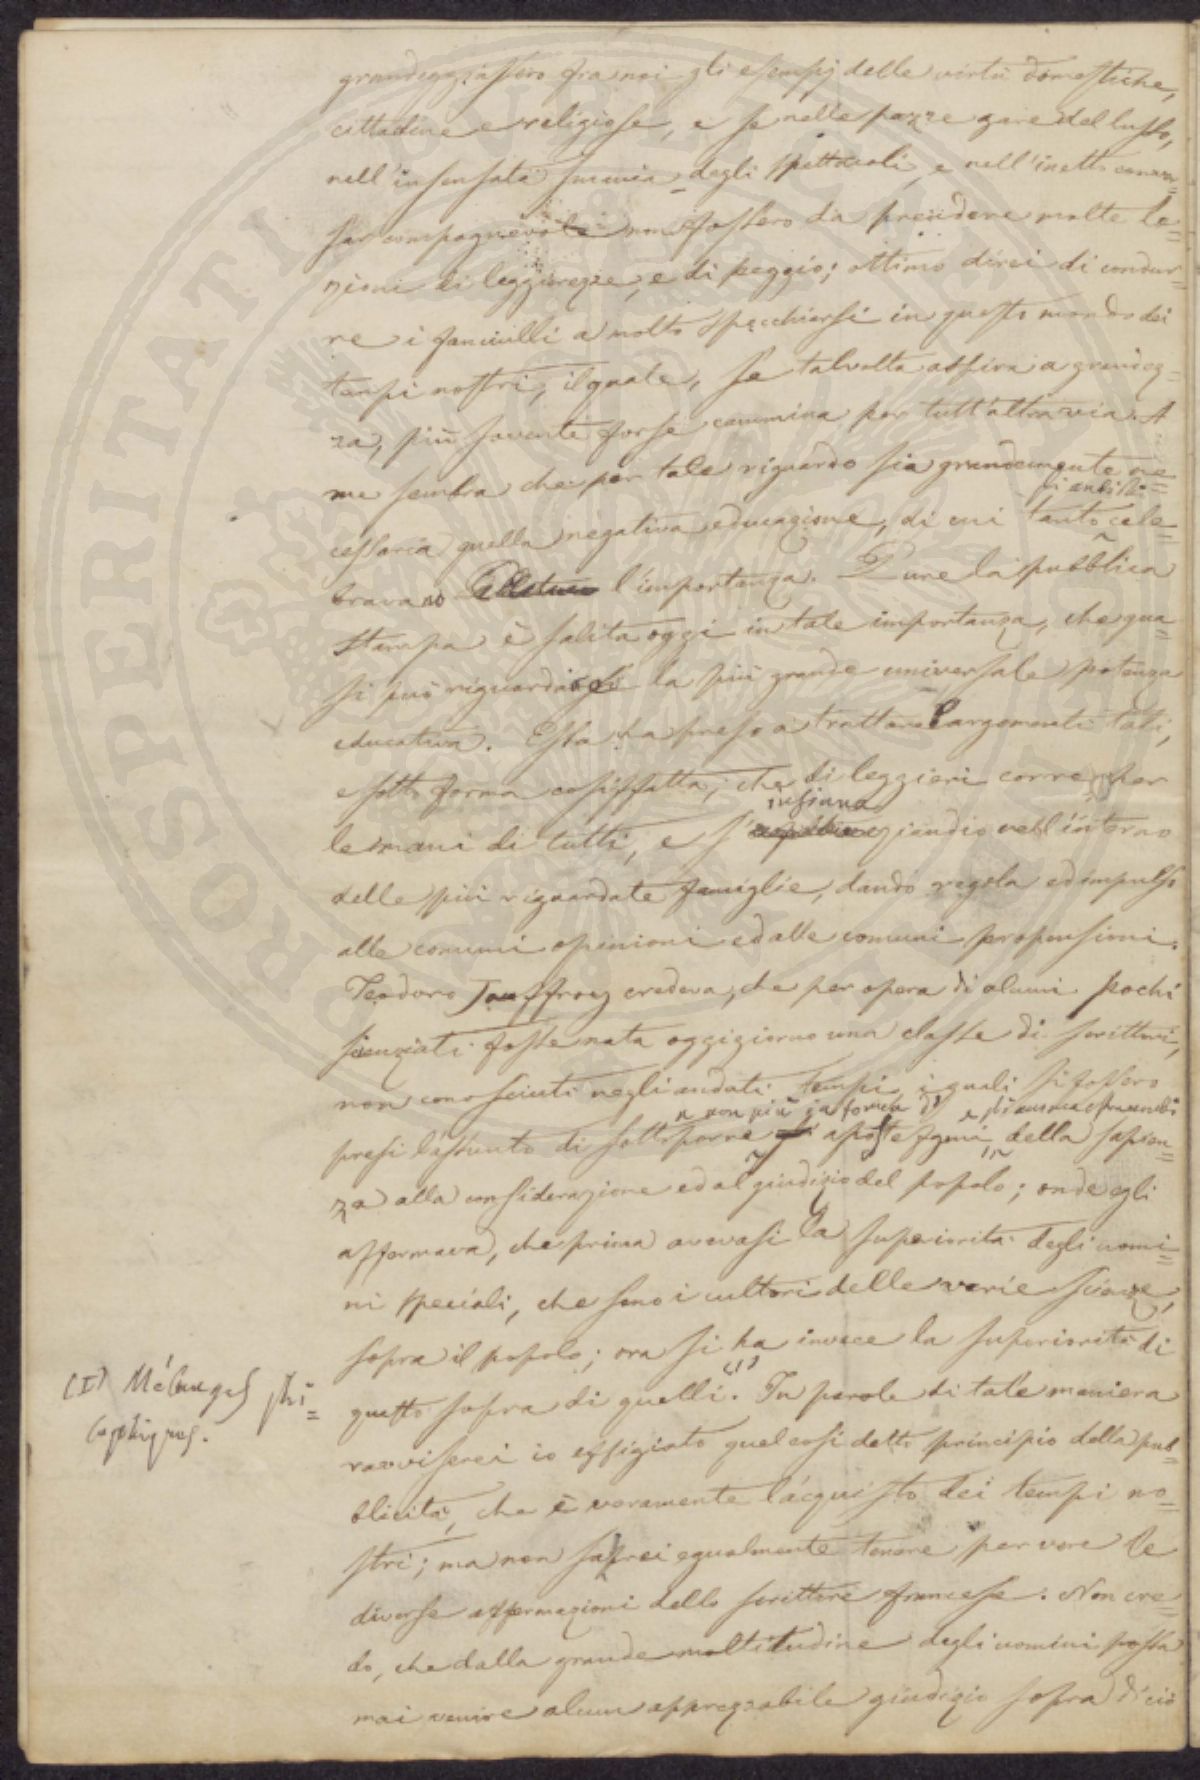 grandeggiassero fra noi gli esempj delle virtù domestiche,
cittadine e religiose, e se nelle pazze gare del lusso,
nell'insensata smania degli spettacoli, e nell'inetto conver=
sar compagnevole non fossero da prendere molte le=
zioni di leggerezze, e di peggio; ottimo direi di condur=
re i fanciulli a molto specchiarsi in questo mondo dei
tempi nostri, il quale, se talvolta aspira a grandez=
za, più sovente forse cammina per tutt'altra via. A
me sembra che per tale riguardo sia grandemente ne=
cessaria quella negativa educazione, di cui tanto cele=
gli antichi
bravano l'importanza. Pure la pubblica
stampa è salita oggi in tale importanza, che qua=
si può riguardarsi la più grande universale potenza
educativa. Essa ha preso a trattare argomenti tali,
e sotto forma cosiffatta, che di leggieri corre per
le mani di tutti, e s'insinua eziandio nell'interno
delle più riguardate famiglie, dando regola ed impulso
alle comuni opinioni ed alle comuni propensioni.
Teodoro Jouffroy credeva, che per opera di alcuni pochi
scienziati fosse nata oggigiorno una classe di scrittori,
non conosciuti negli andati tempi, i quali si fossero
non più in forma di
presi l'assunto di sottoporre apoftegmi, della sapien=
za alla considerazione ed al giudizio del popolo; onde egli
affermava, che prima avevasi la superiorità degli uomi=
ni speciali, che sono i cultori delle varie scienze,
sopra il popolo; ora si ha invece la superiorità di
questo sopra di quelli (1). In parole di tale maniera
ravviserei io effigiato quel così detto principio della pub=
blicità, che è veramente l'acquisto dei tempi no=
stri; ma non saprei egualmente tenere per vere le
diverse affermazioni dello scrittore francese. Non cre=
do, che dalla grande moltitudine degli uomini possa
mai venire alcun apprezzabile giudizio sopra di ciò
(I) Mélanges phi=
losophiques.
ROSPERITATI PUBLICAE